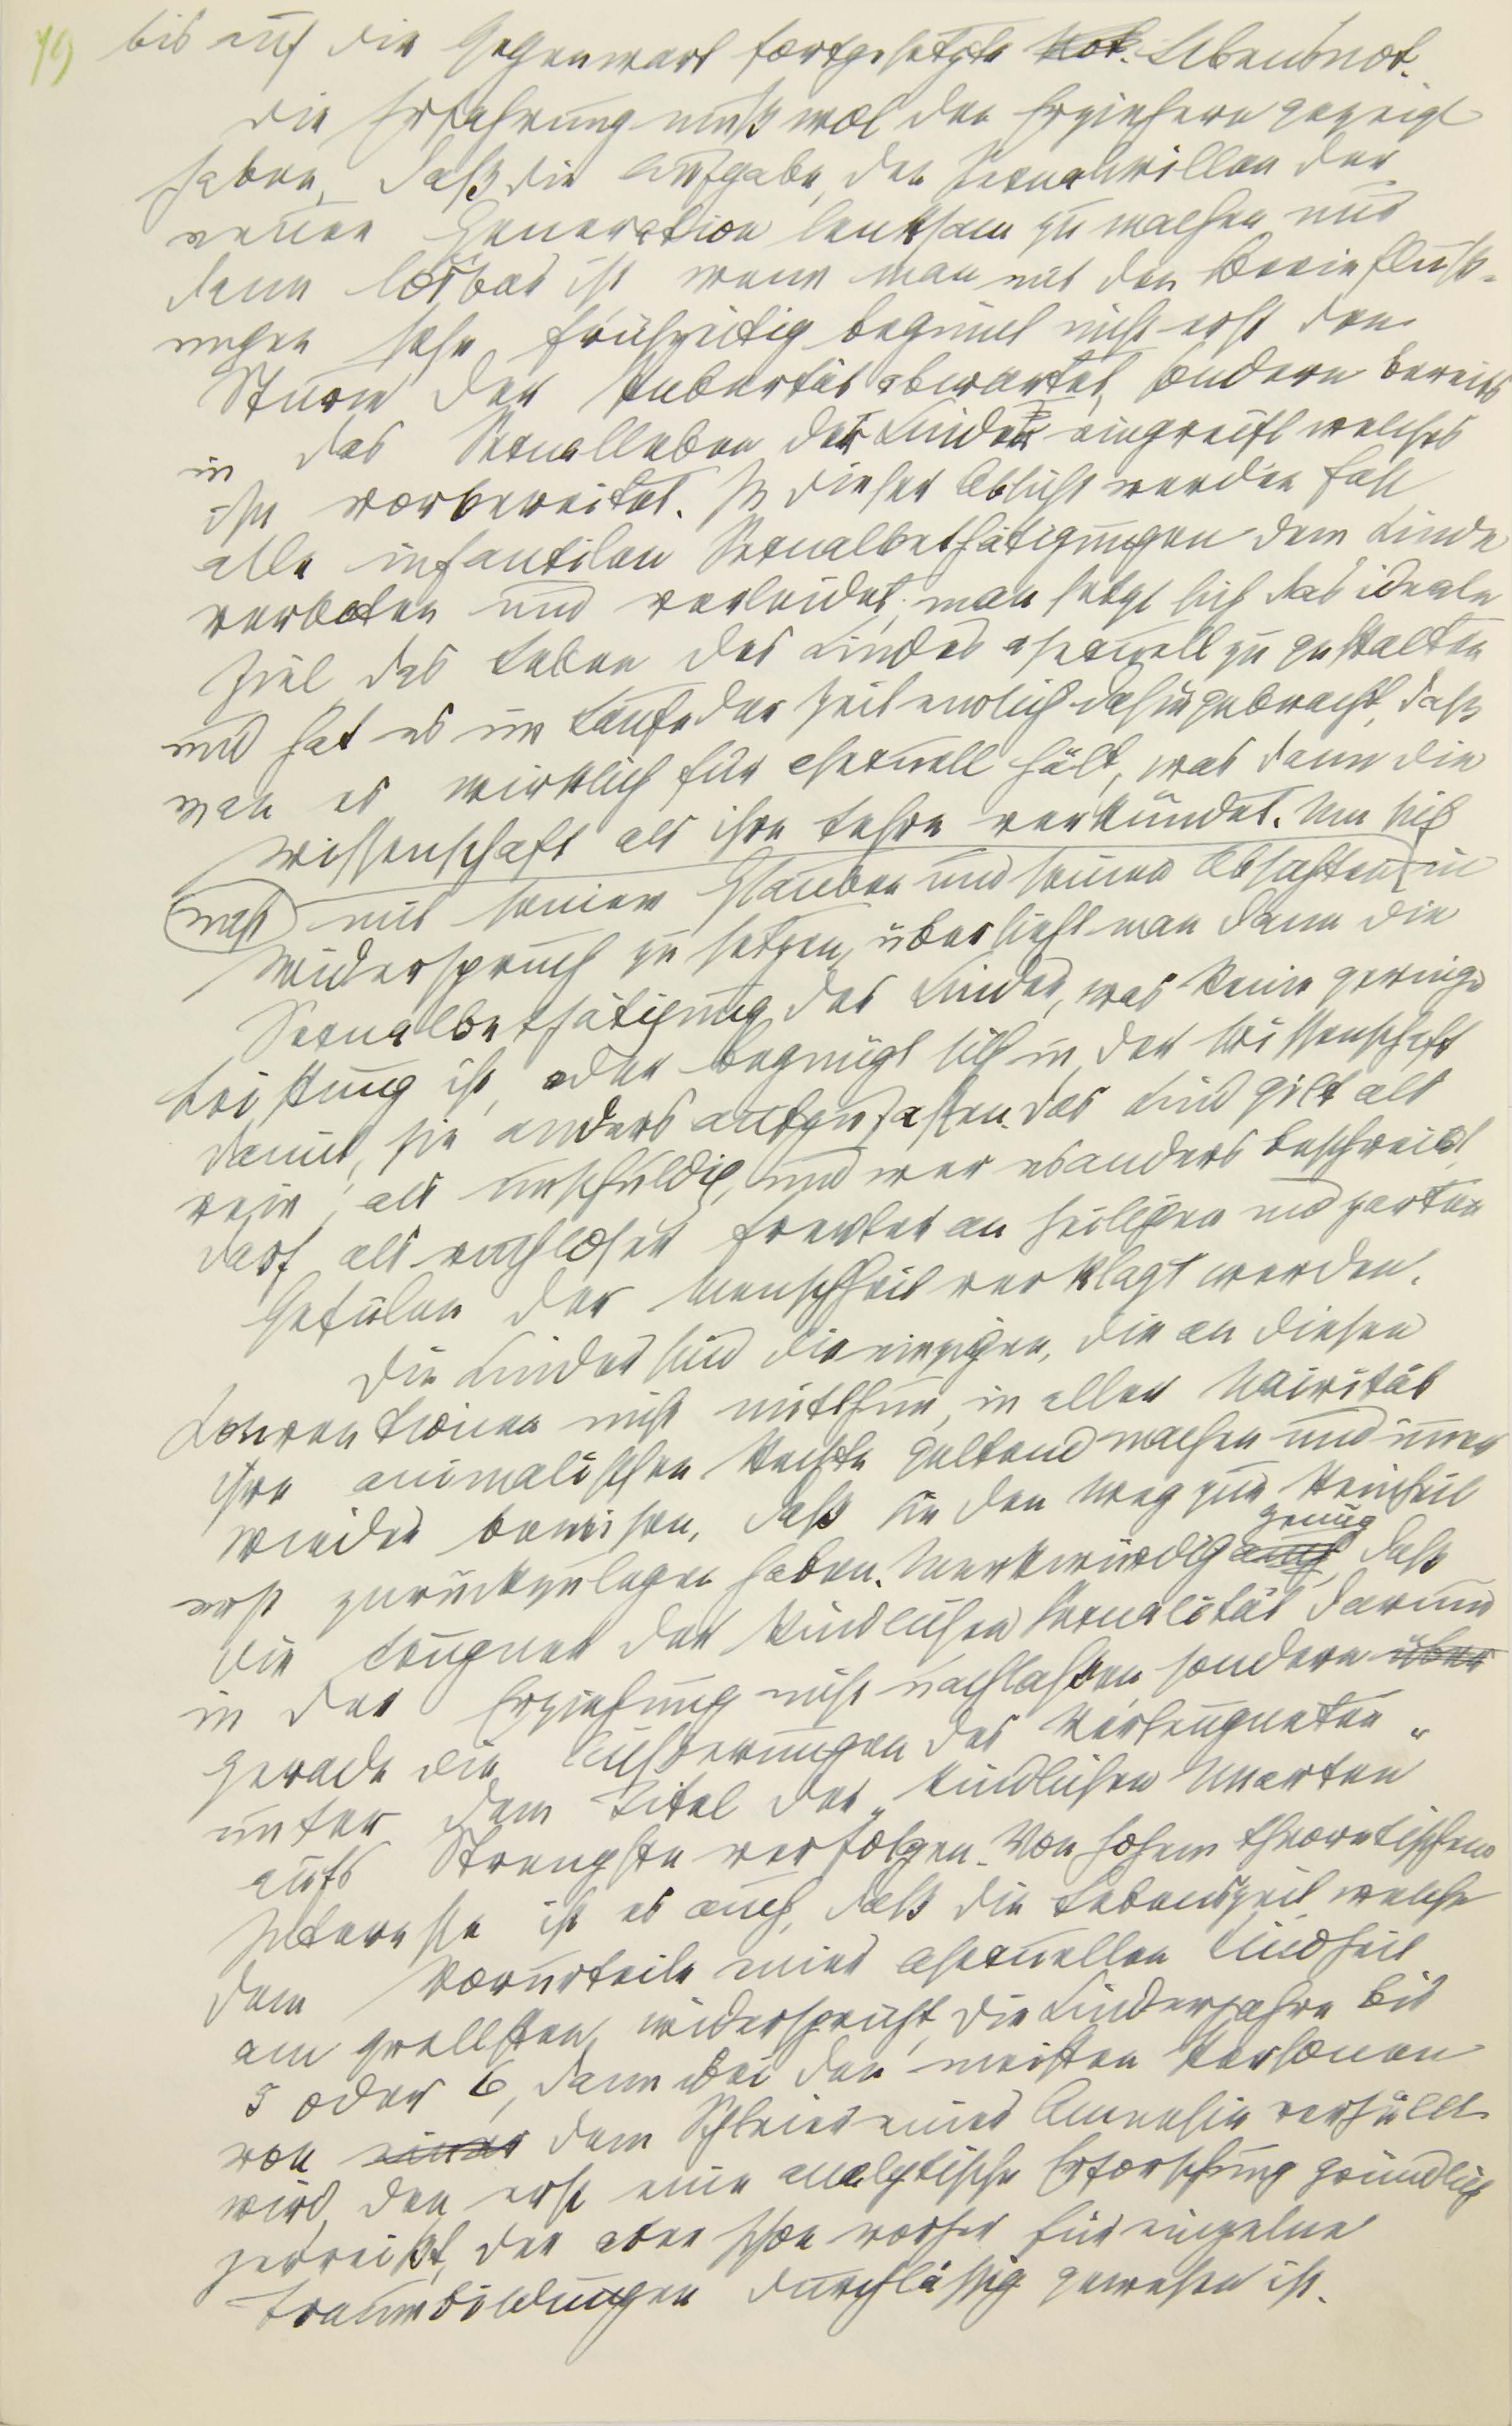 19
bis auf die Gegenwart fortgesetzte Not. Lebensnot.
Die Erfahrung muß wol den Erziehern gezeigt
haben, daß die Aufgabe, den Sexualwillen der
neuen Generation lenksam zu machen nur
dann lösbar ist wenn man mit den Beeinfluß-
ungen sehr frühzeitig beginnt nicht erst den
Sturm der Pubertät abwartet, sondern bereits
in das Sexualleben der Kinder eingreift welches
ihn vorbereitet. In dieser Absicht werden fast
alle infantilen Sexualbethätigungen dem Kinde
verboten und verleidet; man setzt sich das ideale
Ziel, das Leben des Kindes asexuell zu gestalten
und hat es im Laufe der Zeit endlich dahin gebracht, daß
man es wirklich für asexuell hält, was dann die
Wissenschaft als ihre Lehre verkündet. Um sich
nicht mit seinem Glauben und seinen Absichten in
Widerspruch zu setzen, übersieht man dann die
Sexualbethätigung des Kindes, was keine geringe
Leistung ist, oder begnügt sich in der Wissenschaft
damit, sie anders aufzufassen. Das Kind gilt als
rein, als unschuldig, und wer es anders beschreibt,
darf als ruchloser Frevler an heiligen und zarten
Gefülen der Menschheit verklagt werden.
Die Kinder sind die einzigen, die an diesen
Konventionen nicht mitthun, in aller Naivität
ihre animalischen Rechte geltend machen und immer
wieder beweisen, daß sie den Weg zur Reinheit
erst zurückzulegen haben. Merkwürdig auch genug, daß
die Leugner der kindlichen Sexualität darum
in der Erziehung nicht nachlassen sondern über
gerade die Äußerungen des Verleugneten
unter dem Titel der „kindlichen Unarten“
aufs Strengste verfolgen. Von hohem theoretischem
Interesse ist es auch, daß die Lebenszeit, welche
dem Vorurteile einer asexuellen Kindheit
am grellsten widerspricht, die Kinderjahre bis
5 oder 6, dann bei den meisten Personen
von einer dem Schleier einer Amnesie verhüllt
wird, den erst eine analytische Erforschung gründlich
zerreißt, der aber schon vorher für einzelne
Traumbildungen durchlässig gewesen ist.